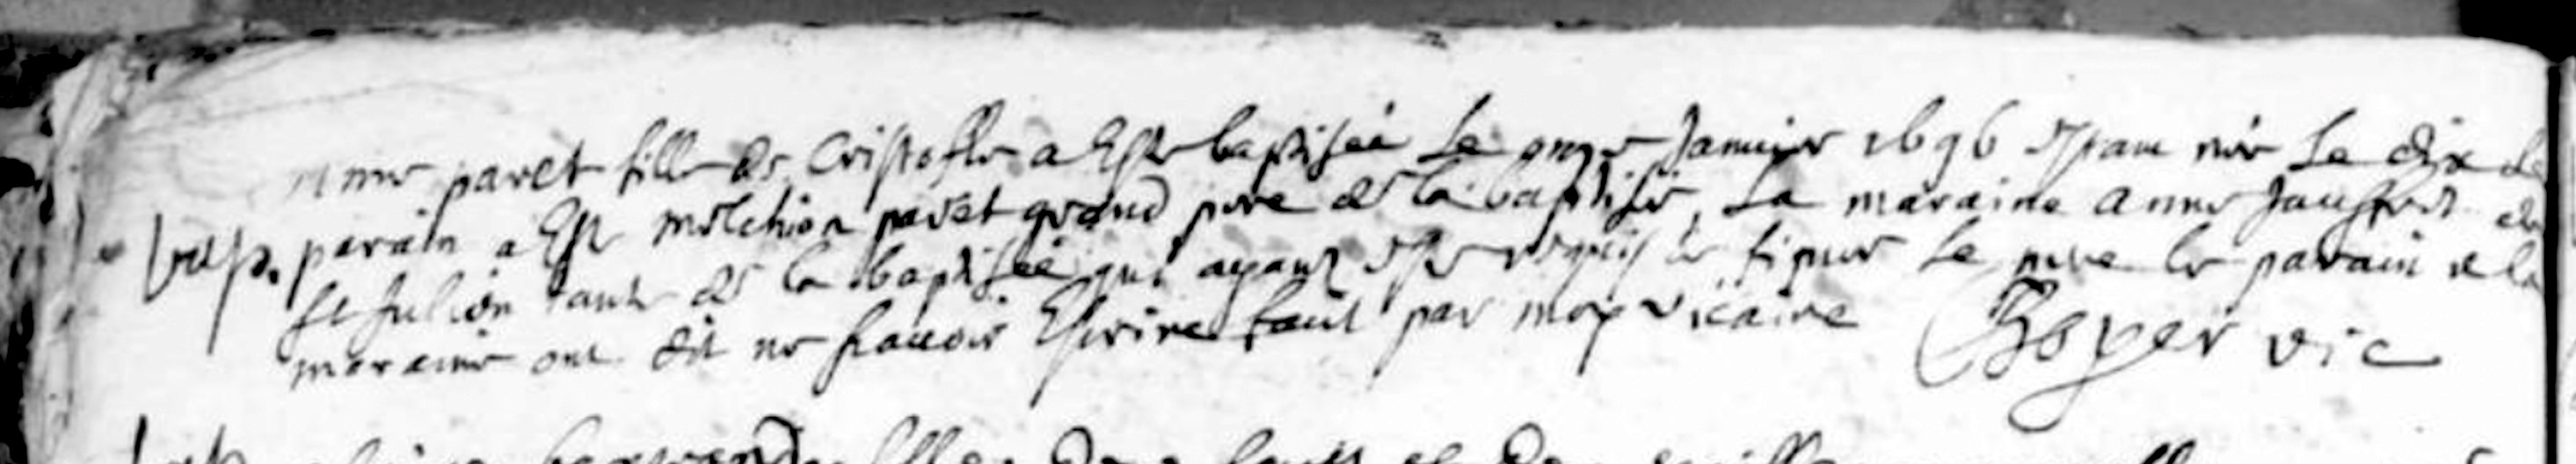 Anne pavet fille de Cristofle a Este baptisée Le onze Janvier 1696 estant née Le dix le
bap. parain a Este melchion pavet grand pere de la baptisée, La maraine Anne Jauffret de
St Julien tante de la baptisée qui ayant esté requis de signer Le pere le parain et la
maraine ont dit ne scavoir Escrire fait par moy vicaire Boyer vic